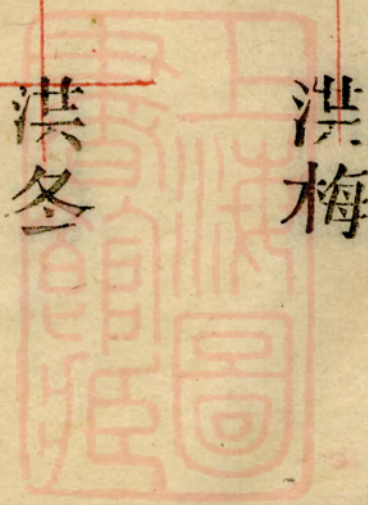 洪梅
洪冬
上海圖書館藏